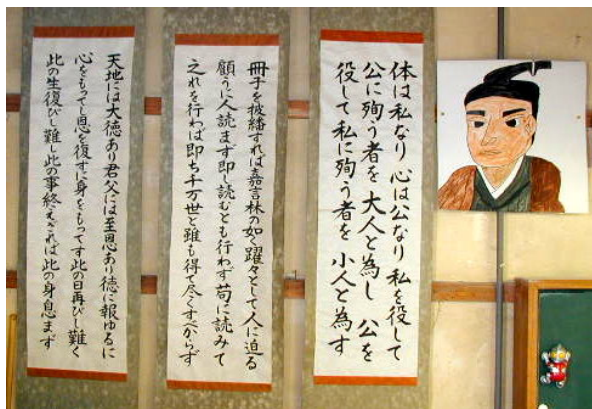 体は私なり心は公なり私を役して
公に殉う者を大人と為し公を
役して私に殉う者を小人と為す
冊子を披繙すれば嘉言林の如く躍々として人に迫る
顧うに人読まず即し読むとも行わず苟に読みて
之れを行わば即ち千万世と雖も得て尽くすべからず
天地には大徳あり君父には至恩あり徳に報ゆるに
心をもってし恩を復すに身をもってす此の日再びし難く
此の生復びし難し此の事終えざれば此の身息まず